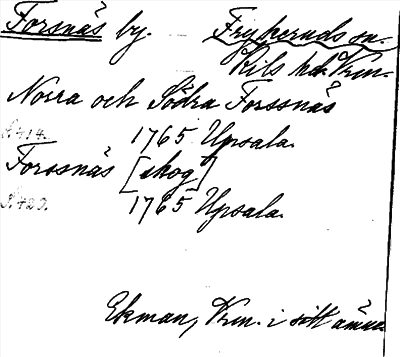 Forsnäs by. Frykeruds sn.
Kils hd. Vrm.
Norra och Södra Forssnäs
S. 414. 1765 Upsala.
Forssnäs [skog]
S. 420. 1765 Upsala.
Ekman, Vrm. i sitt ämne